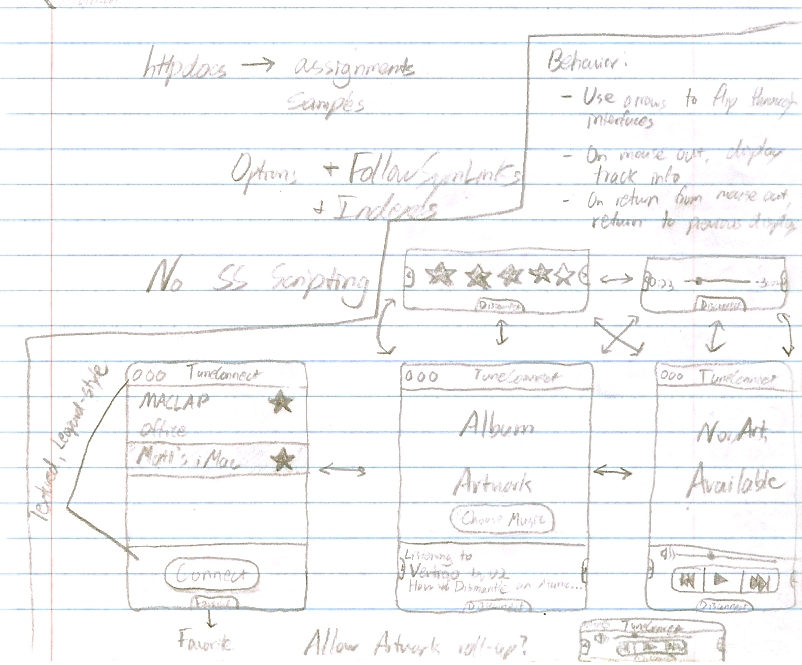 httpdocs → assignments
samples
Options + FollowSymLinks
+ Indexes
No SS Scripting
Behavior:
- Use arrows to flip through
interfaces
- On mouse out, display
track info
- On return from mouse out,
return to previous display
Disconnect
0:23
Disconnect
Textured, Leopard-style
TuneConnect
MACLAP
Office
Matt's iMac
Connect
Favorite
Favorite
TuneConnect
Album
Artwork
Choose Music
Listening to
Vertigo by U2
How to Dismantle an Atomic...
Disconnect
TuneConnect
No Art
Available
Disconnect
Allow Artwork roll-up?
TuneConnect